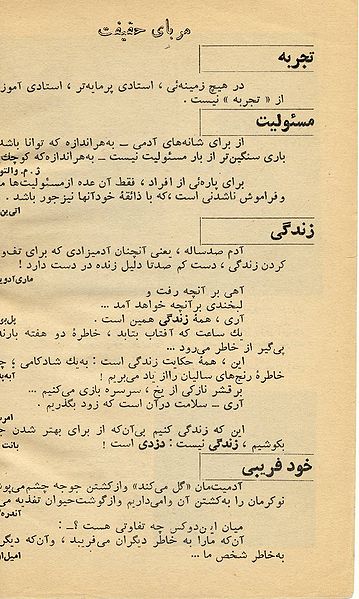 مربای حقیقت
تجربه
در هیچ زمینه‌ئی ، استادی پرمایه‌تر ، استادی آموز
از « تجربه » نیست .
مسئولیت
از برای شانه‌های آدمی ــ به‌هراندازه که توانا باشد
باری سنگین‌تر از بار مسئولیت نیست ــ به‌هراندازه‌که کوچك
ژ . م. والتو
برای پاره‌ئی از افراد ، فقط آن عده ازمسئولیت‌ها م
وفراموش ناشدنی است ،که با ذائقهٔ خودآنها نیزجور باشد .
زندگی
آدم صدساله ، یعنی آنچنان آدمیزادی که برای تف‌و
کردن زندگی ، دست کم صدتا دلیل زنده در دست دارد !
آهی بر آنچه رفت و
لبخندی برآنچه خواهد آمد ...
آری ، همهٔ زندگی همین است .
یك ساعت که آفتاب بتابد ، خاطرهٔ دو هفته بارند
پی‌گیر از خاطر می‌رود ...
این ، همهٔ حکایت زندگی است : به‌یك شادکامی ؛ چ
خاطرهٔ رنج‌های سالیان رااز یاد می‌بریم !
بر قشر نازکی از یخ ، سرسره بازی می‌کنیم ...
آری ــ سلامت درآن است که زود بگذریم .
این که زندگی کنیم بی‌آن‌که از برای بهتر شدن ج
بکوشیم ، زندگی نیست : دزدی است !
خود فریبی
آدمیت‌مان «گل می‌کند» وازکشتن جوجه چشم‌می‌پوش
نوکرمان را به‌کشتن آن وامی‌داریم وازگوشت‌حیوان تغذیه می
میان این‌دوکس چه تفاوتی هست ؟ــ :
آن‌که مارا به خاطر دیگران می‌فریبد ، وآن‌که دیگر
به‌خاطر شخص ما ...